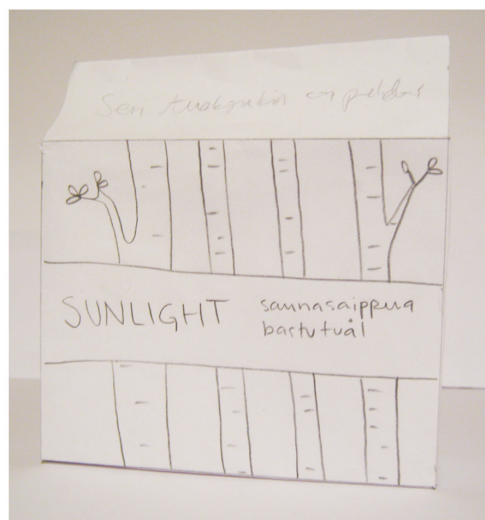 Sen tuoksukin on puhdas
SUNLIGHT saunasaippua
bastutvål